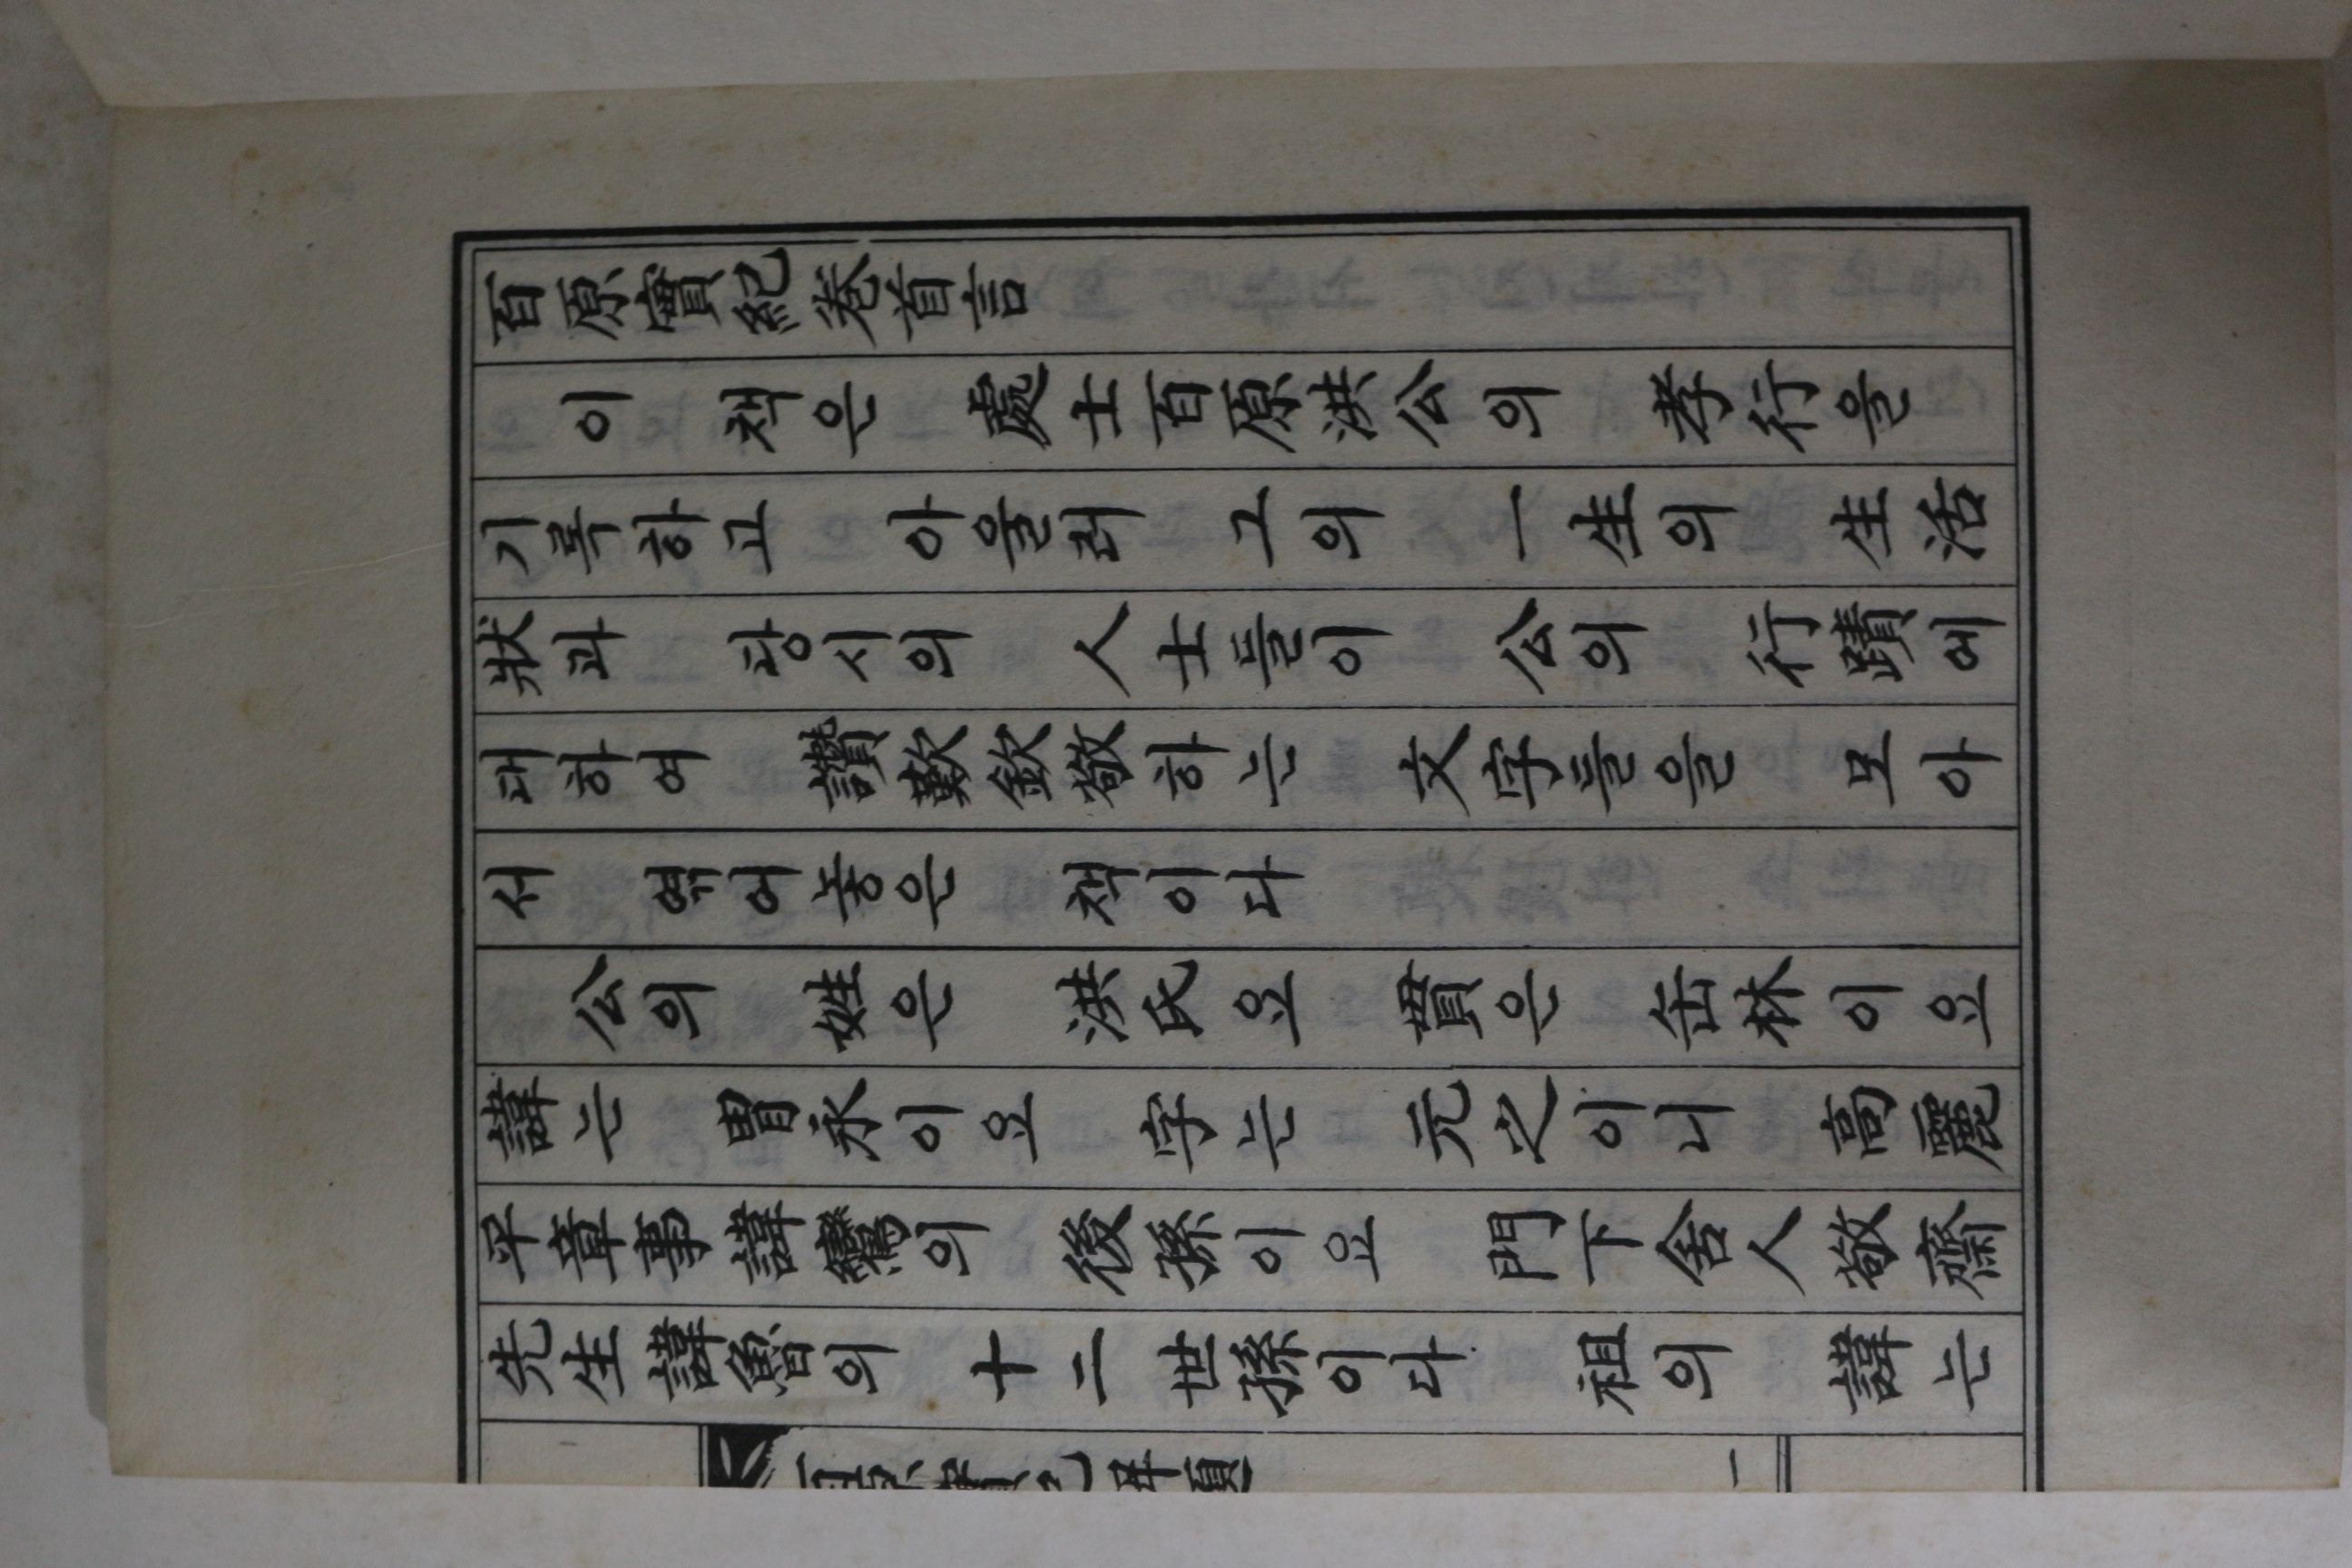 百原實紀卷首言
이 책은 處士百原洪公의 孝行을
기록하고 아울러 그의 一生의 生活
狀과 당시의 人士들이 公의 行蹟에
대하여 讚歎欽敬하는 文字들을 모아
서 엮어놓은 책이다
公의 姓은 洪氏요 貫은 缶林이요
諱는 胄永이요 字는 元之이니 高麗
平章事諱鸞의 後孫이요 門下舍人敬齋
先生諱魯의 十二世孫이다 祖의 諱는
一